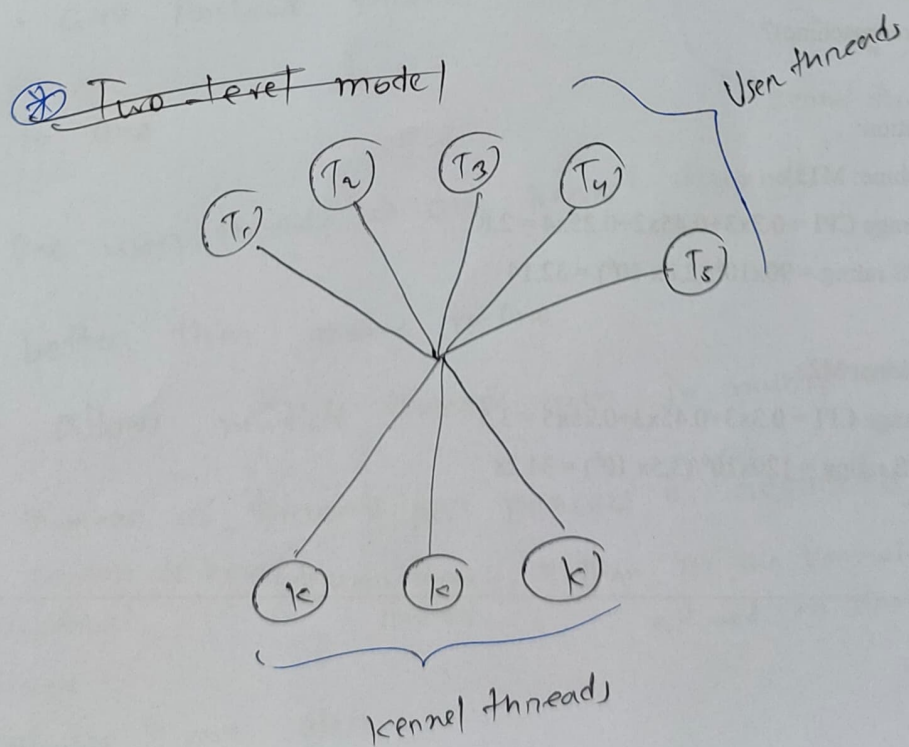 Two-level model
User threads
T1
T2
T3
T4
T5
K
K
K
Kernel threads